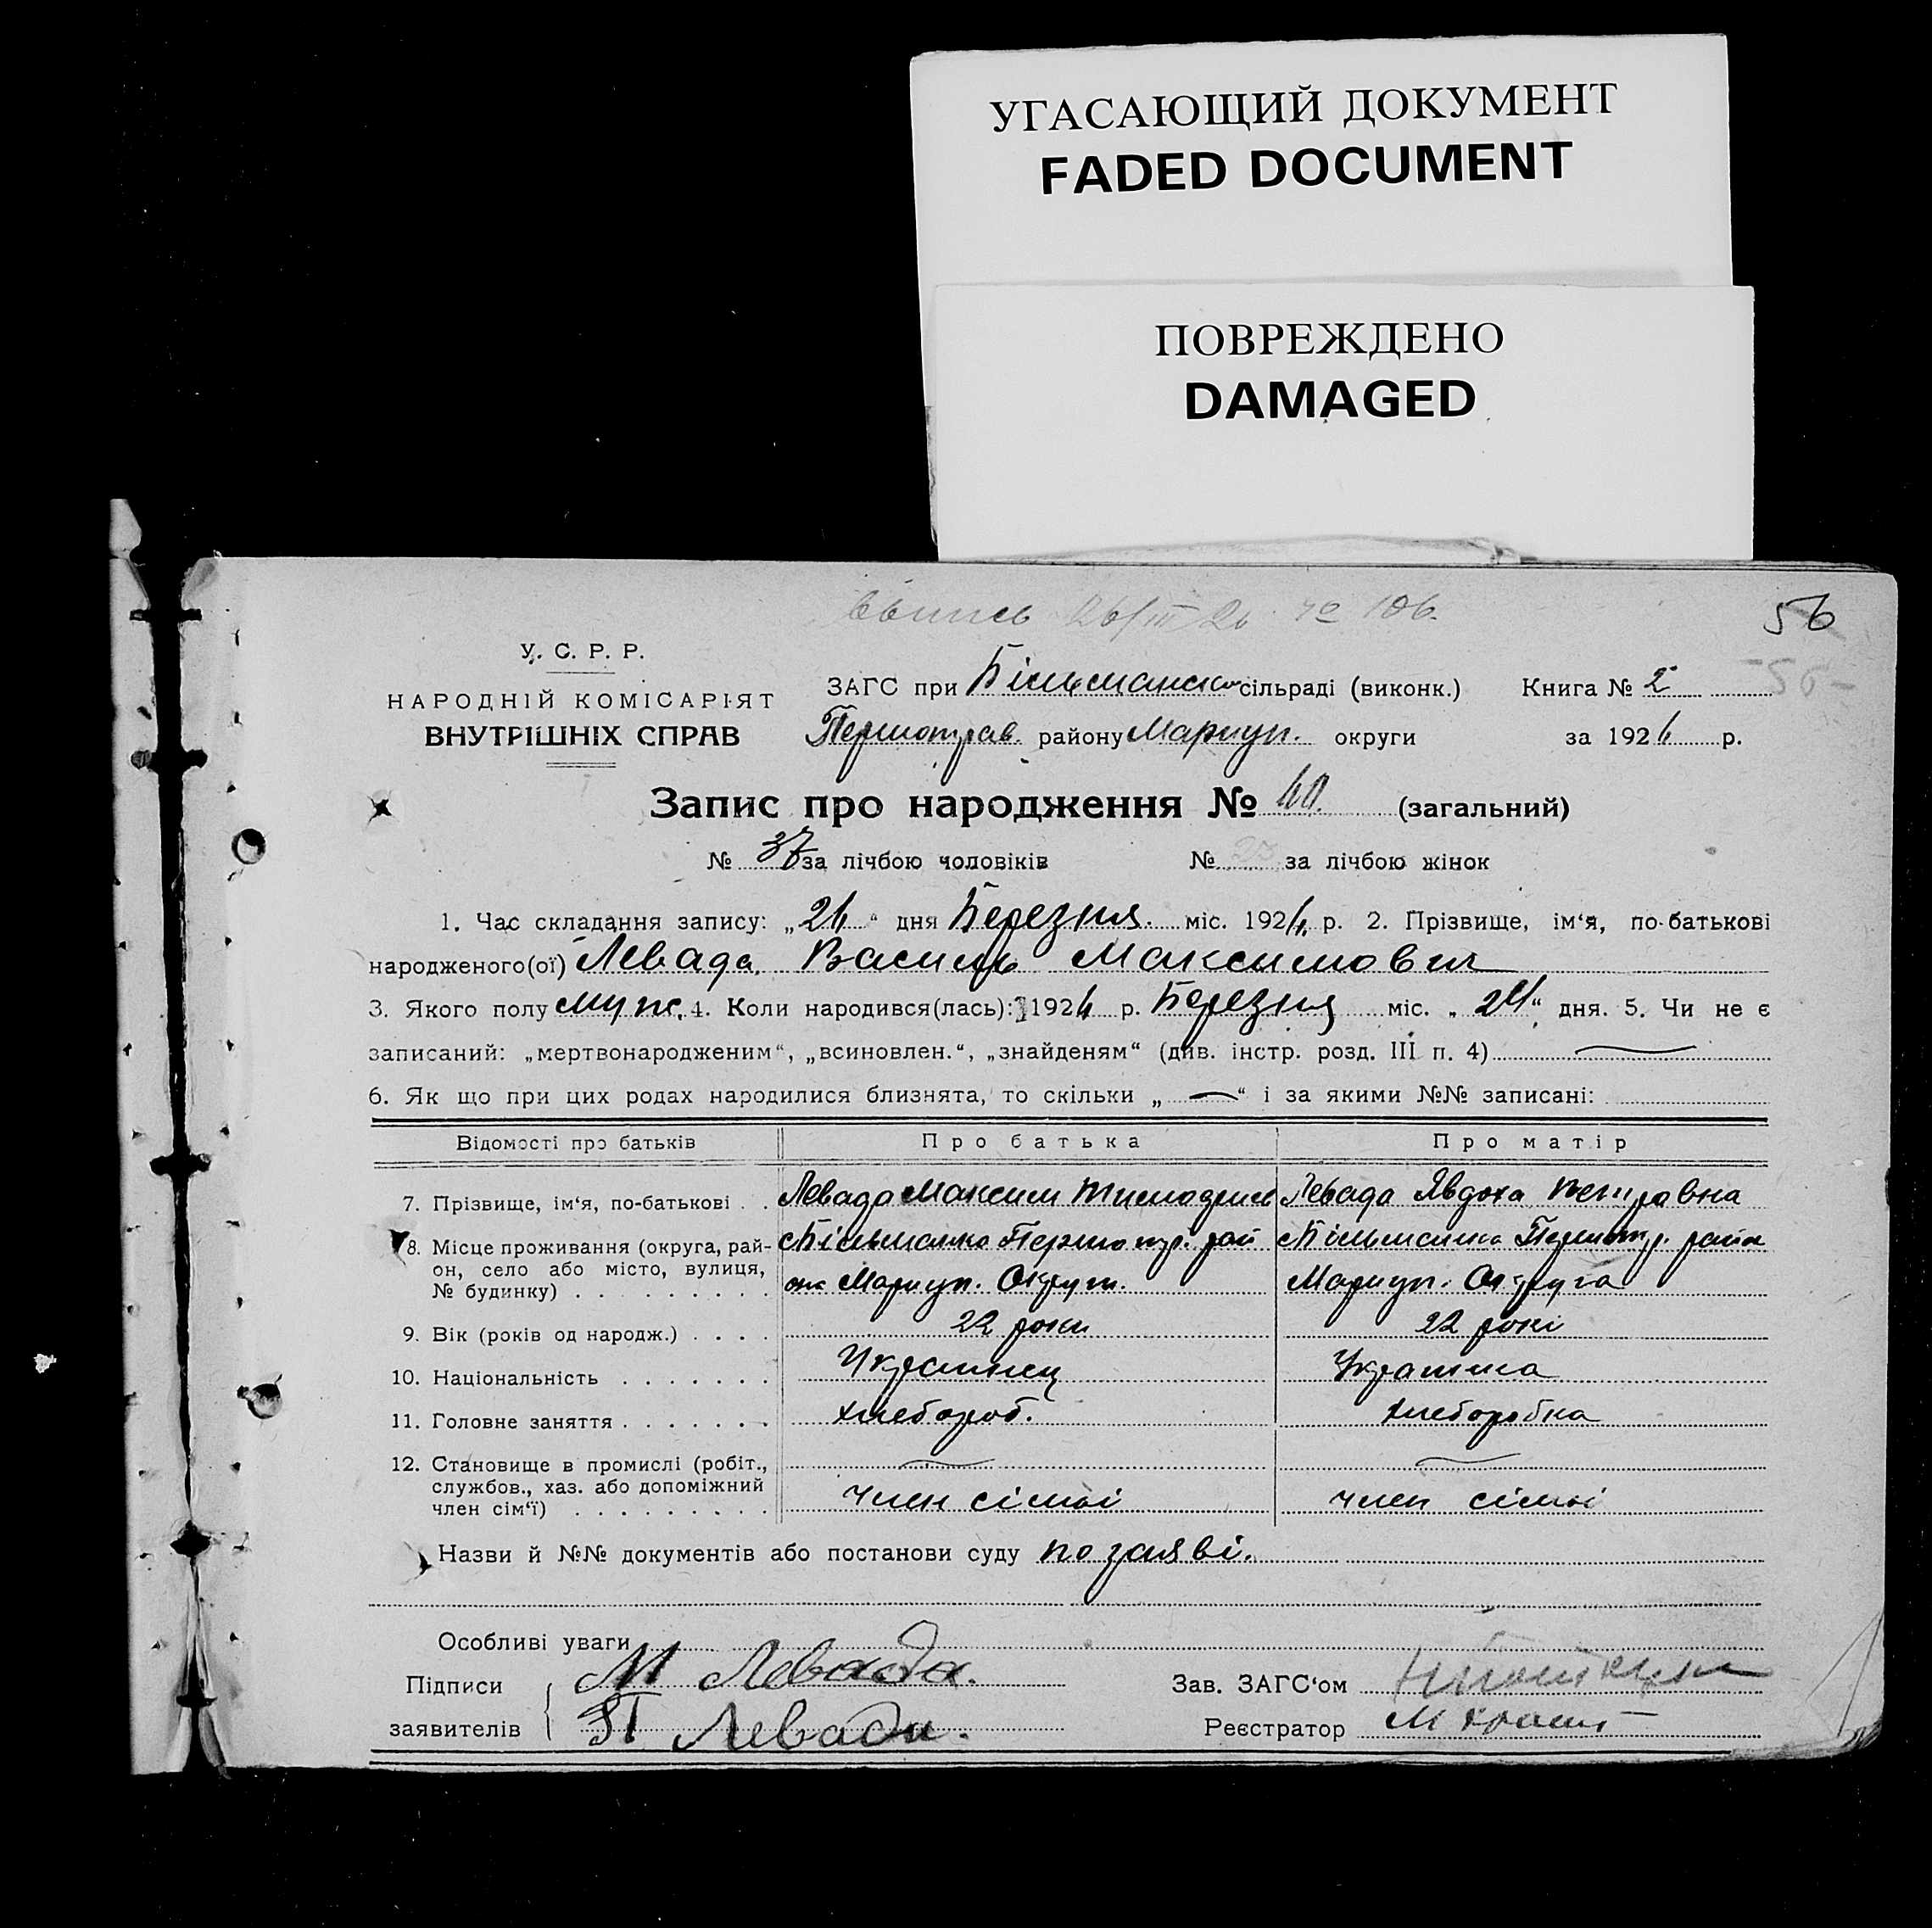 УГАСАЮЩИЙ ДОКУМЕНТ
FADED DOCUMENT
ПОВРЕЖДЕНО
DAMAGED
56
У. С. Р. Р.
НАРОДНІЙ КОМІСАРІЯТ
ВНУТРІШНІХ СПРАВ
ЗАГС при Більманско сільраді (виконк.) Книга № 2
Першотрав. району Мариуп. округи за 1926 р.
Запис про народження № 60 (загальний)
№ 37 за лічбою чоловіків № за лічбою жінок
1. Час складання запису: „26“ дня Березня міс. 1926 р. 2. Прізвище, ім‘я, по-батькові
народженого(ої) Левада Василь Максимович
3. Якого полу муж. 4. Коли народився(лась): 1926 р. Березня міс. „ “ дня. 5. Чи не є
записаний: „мертвонародженим“, „всиновлен.“, „знайденям“ (див. інстр. розд. III п. 4) —
6. Як що при цих родах народилися близнята, то скільки „—“ і за якими №№ записані:
Відомості про батьків Про батька Про матір
7. Прізвище, ім‘я, по-батькові . . Левада Максим Левада Явдоха Петравна
8. Місце проживання (округа, рай- с Більманка Першотр. рай с Більманка Першотр. район
он, село або місто, вулиця,
№ будинку) . . . . . . . . . он Мариуп. Округи. Мариуп. Округа
9. Вік (років од народж.) . . . . 22 роки 22 рокі
10. Національність . . . . . . . Украинец Украинка
11. Головне заняття . . . . . . . хлебороб. хлеборобка
12. Становище в промислі (робіт., — —
службов., хаз. або допоміжний
член сім‘ї) . . . . . . . . . член сімьі член сімьі
Назви й №№ документів або постанови суду по заяві.
Особливі уваги
Підписи М Левада. Зав. ЗАГС‘ом
заявителів Левада. Реєстратор